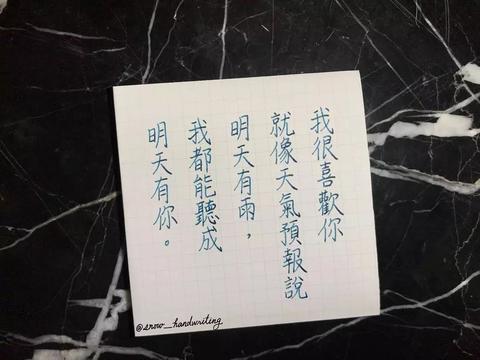 我很喜歡你
就像天氣預報說
明天有雨，
我都能聽成
明天有你。
@snow_handwriting